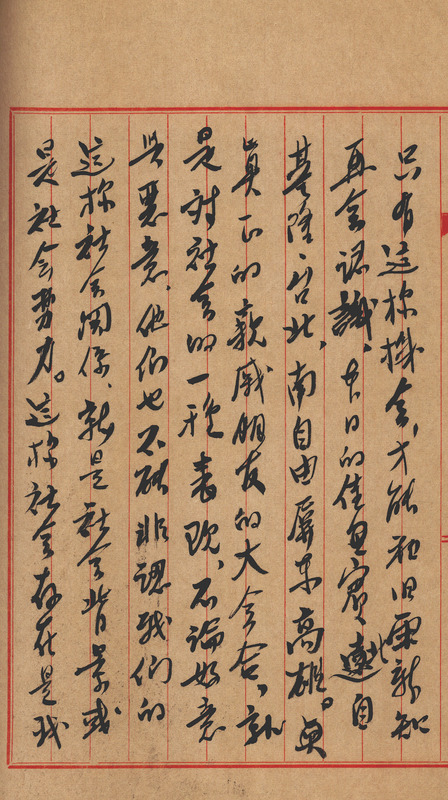 只有這樣機會,才能和旧雨新知
再会認識,本日的佳宾,遠北自
基隆、台北,南自由屏東高雄。與
真正的親戚朋友的大会合,就
是对社会的一種表現,不論好意
与恶意,他们也不能非認我们的
這樣社会関係、就是社会背景或
是社会势力。這樣社会存在是我